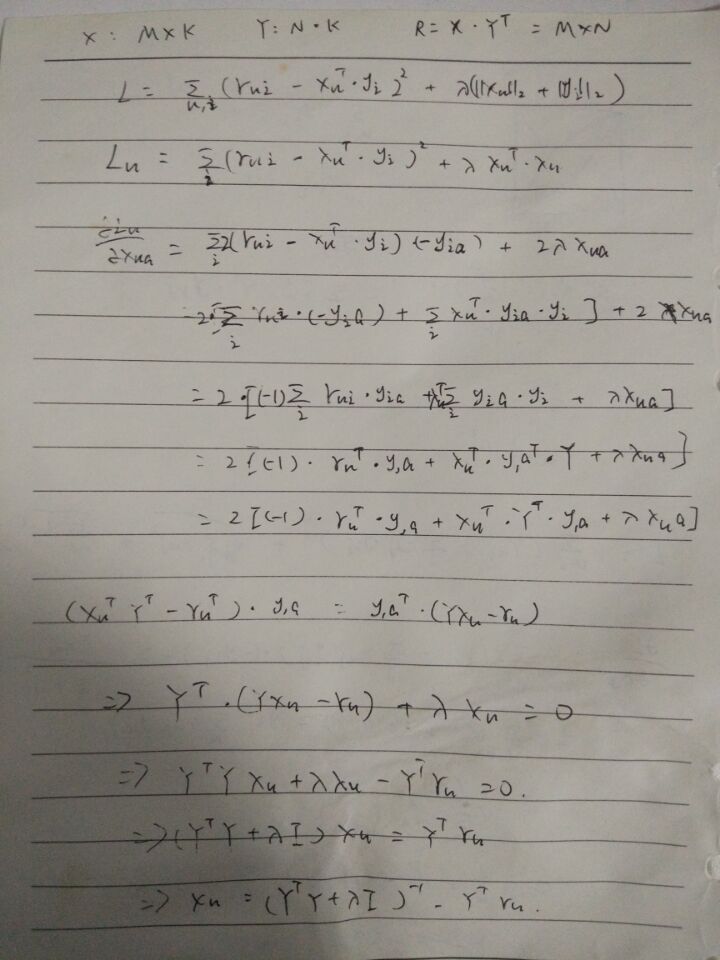 X : M×K Y : N·K R = X · Yᵀ = M×N
L = Σ_{u,i} (r_{ui} - x_uᵀ · y_i)² + λ(||x_u||₂ + ||y_i||₂)
L_u = Σ_i (r_{ui} - x_uᵀ · y_i)² + λ x_uᵀ · x_u
∂L_u/∂x_{ua} = Σ_i 2(r_{ui} - x_uᵀ · y_i) (-y_{ia}) + 2λ x_{ua}
= 2·[Σ_i r_{ui} · (-y_{ia}) + Σ_i x_uᵀ · y_{ia} · y_i ] + 2 λ x_{ua}
= 2 · [(-1) Σ_i r_{ui} · y_{ia} + x_uᵀ Σ_i y_{ia} · y_i + λ x_{ua}]
= 2 [(-1) · r_uᵀ · y_{,a} + x_uᵀ · y_{,a}ᵀ · Y + λ x_{ua}]
= 2 [(-1) · r_uᵀ · y_{,a} + x_uᵀ · Yᵀ · y_{,a} + λ x_{ua}]
(x_uᵀ Yᵀ - r_uᵀ) · y_{,a} = y_{,a}ᵀ · (Y x_u - r_u)
=> Yᵀ · (Y x_u - r_u) + λ x_u = 0
=> Yᵀ Y x_u + λ x_u - Yᵀ r_u = 0.
=> (Yᵀ Y + λ I) x_u = Yᵀ r_u
=> x_u = (Yᵀ Y + λ I)⁻¹ · Yᵀ r_u.